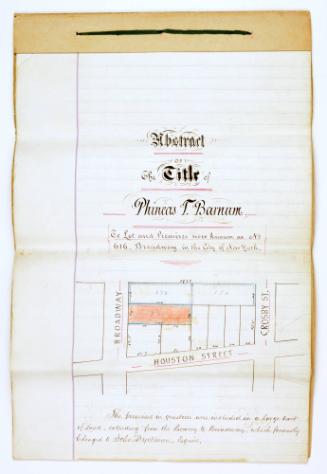 Abstract
OF
The Title of
Phineas T. Barnum,
To Lot and Premises now known as No
616, Broadway, in the City of New York.
BROADWAY
CROSBY ST.
HOUSTON STREET
The premises in question were included in a large tract
of land, extending "from the Bowery to Broadway," which formerly
belonged to John Dyckman, Esquire,